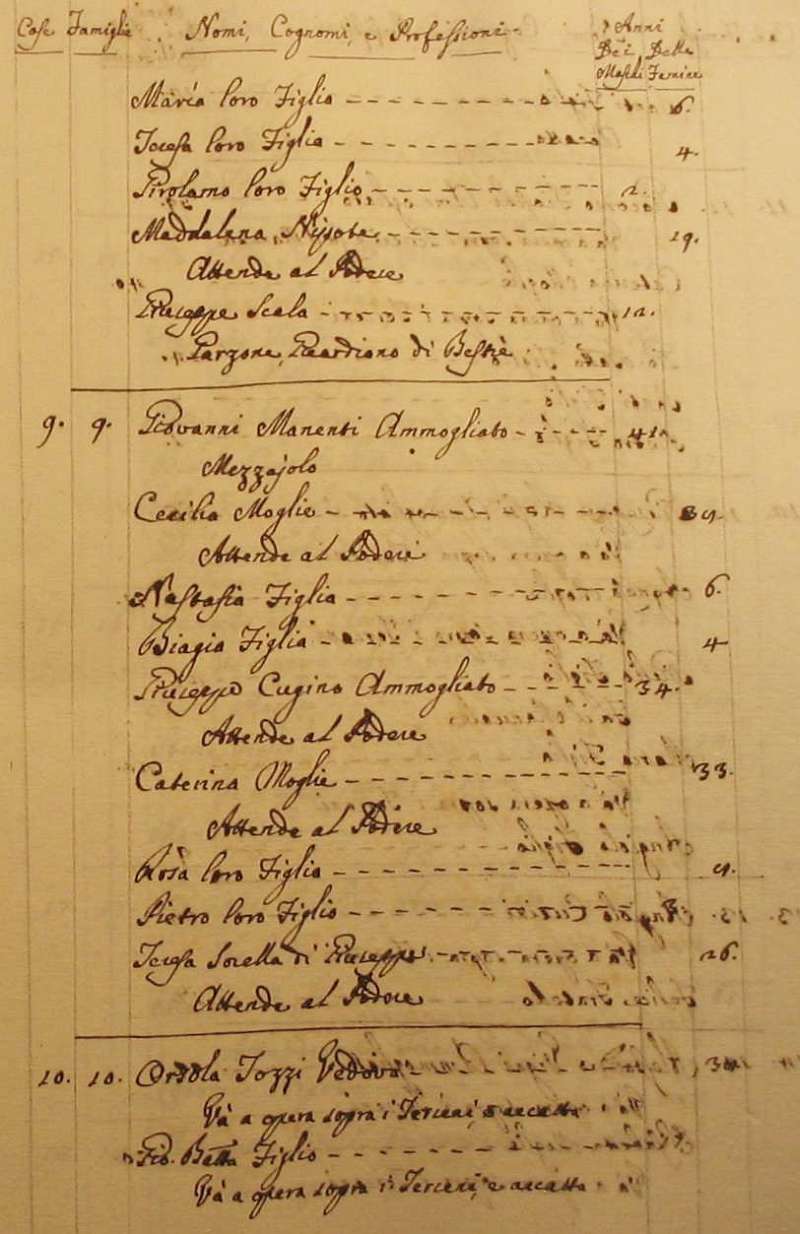 Case Famiglie Nomi, Cognomi, e Professioni Anni
Dei Delle
Maschi Femine
Maria loro Figlia 6.
Teresa loro Figlia 4.
Girolamo loro Figlio 2.
Maddalena Nipote 19.
Attende al Podere
Giuseppe Scala 12.
Garzone, Guardiano di Bestie
9. 9. Giovanni Manenti Ammogliato 41.
Mezzajolo
Cecilia Moglie
Attende al Podere
Nastasia Figlia 6.
Biagia Figlia 4
Giuseppe Cugino Ammogliato 34.
Attende al Podere
Caterina Moglie 33.
Attende al Podere
Rosa loro Figlia
Pietro loro Figlio
Teresa Sorella di Giuseppe 26.
Attende al Podere
10. 10. Orsola Tozzi Vedova
Và a opera sopra i Terreni e accatta
Gio. Batta Figlio
Và a opera sopra i Terreni, e accatta